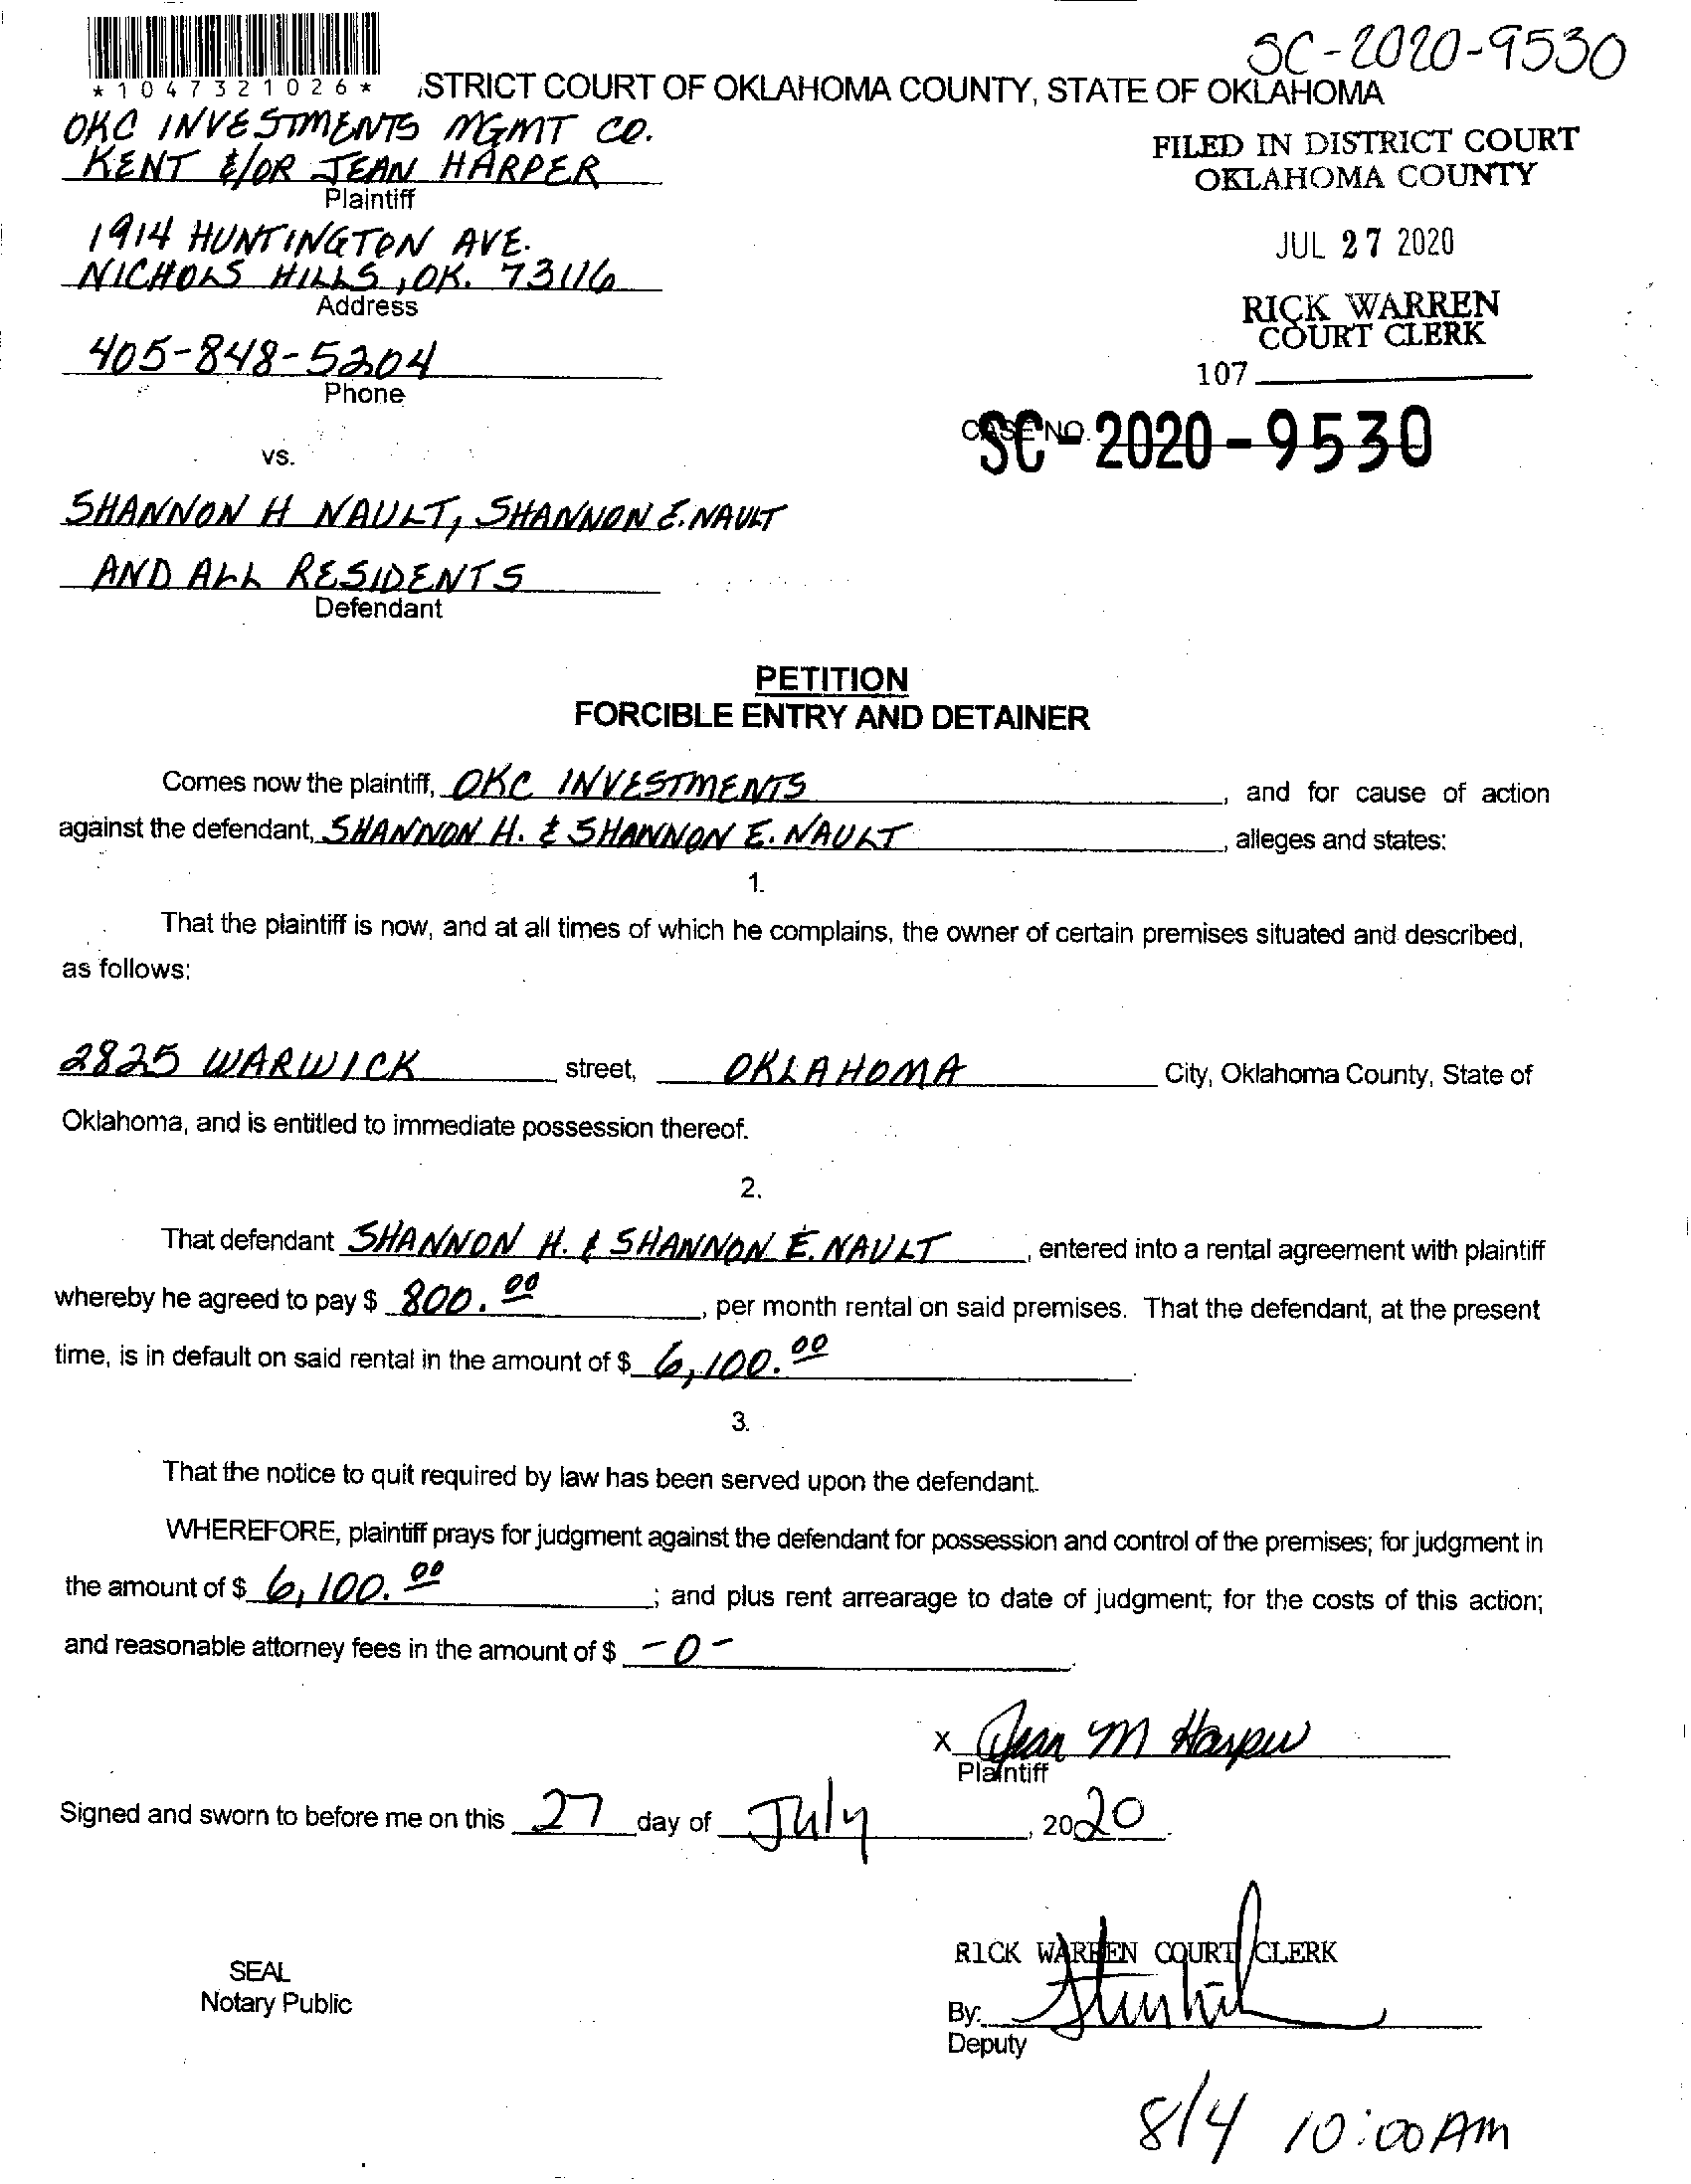 SC-2020-9530
*1047321026*
STRICT COURT OF OKLAHOMA COUNTY, STATE OF OKLAHOMA
OKC INVESTMENTS MGMT CO.
KENT &/OR JEAN HARPER
Plaintiff
FILED IN DISTRICT COURT
OKLAHOMA COUNTY
1914 HUNTINGTON AVE.
NICHOLS HILLS, OK. 73116
Address
JUL 27 2020
RICK WARREN
COURT CLERK
405-848-5204
Phone
107
CASE NO. SC-2020-9530
vs.
SHANNON H NAULT, SHANNON E. NAULT
AND ALL RESIDENTS
Defendant
PETITION
FORCIBLE ENTRY AND DETAINER
Comes now the plaintiff, OKC INVESTMENTS, and for cause of action
against the defendant, SHANNON H. & SHANNON E. NAULT, alleges and states:
1.
That the plaintiff is now, and at all times of which he complains, the owner of certain premises situated and described,
as follows:
2825 WARWICK street, OKLAHOMA City, Oklahoma County, State of
Oklahoma, and is entitled to immediate possession thereof.
2.
That defendant SHANNON H. & SHANNON E. NAULT, entered into a rental agreement with plaintiff
whereby he agreed to pay $ 800.00, per month rental on said premises. That the defendant, at the present
time, is in default on said rental in the amount of $ 6,100.00.
3.
That the notice to quit required by law has been served upon the defendant.
WHEREFORE, plaintiff prays for judgment against the defendant for possession and control of the premises; for judgment in
the amount of $ 6,100.00; and plus rent arrearage to date of judgment; for the costs of this action;
and reasonable attorney fees in the amount of $ -0-.
x Jean M Harper
Plaintiff
Signed and sworn to before me on this 27 day of July, 2020.
RICK WARREN COURT CLERK
SEAL
Notary Public
By:
Deputy
8/4 10:00 AM